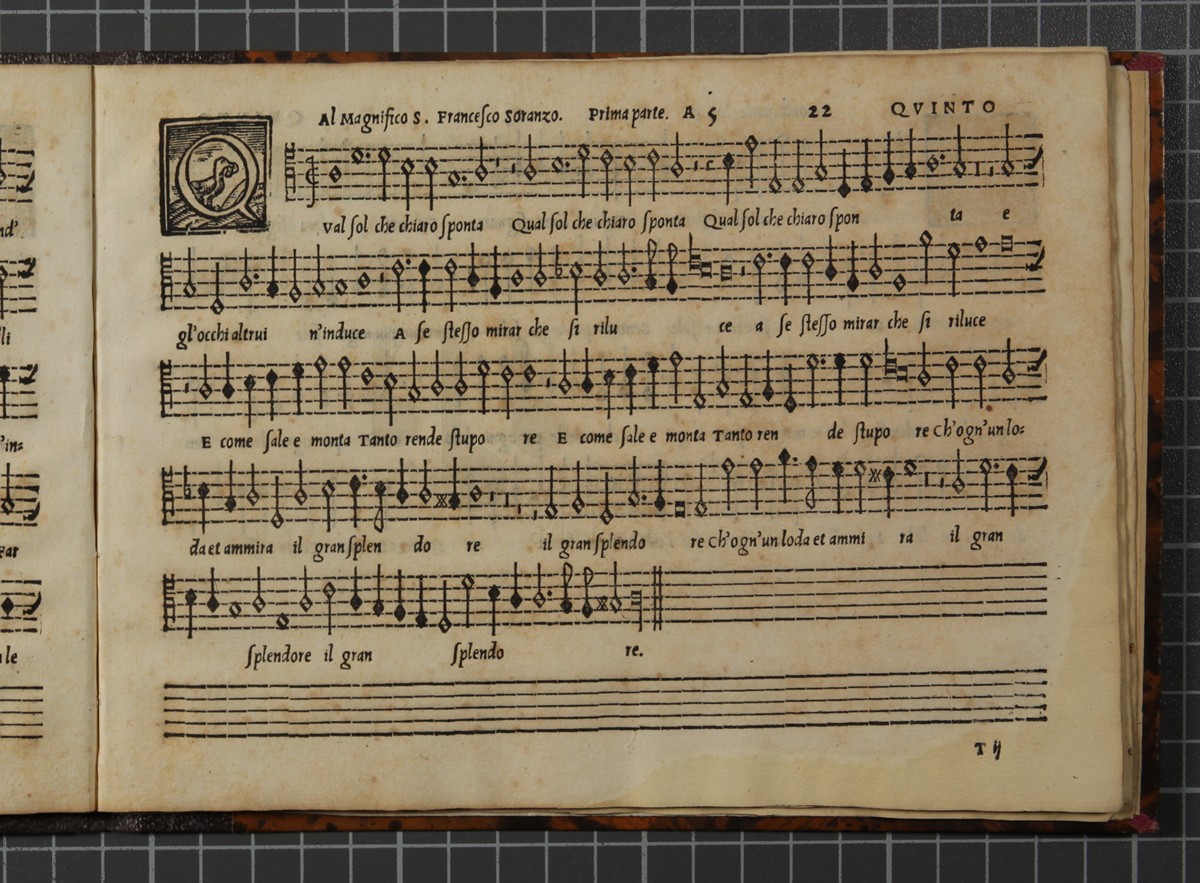 Al Magnifico S. Francesco Soranzo. Prima parte. A 5 22 QVINTO
Qval sol che chiaro sponta Qual sol che chiaro sponta Qual sol che chiaro spon ta e
gl'occhi altrui n'induce A se stesso mirar che si rilu ce a se stesso mirar che si riluce
E come sale e monta Tanto rende stupo re E come sale e monta Tanto ren de stupo re Ch'ogn'un lo=
da et ammira il gran splen do re il gran splendo re Ch'ogn'un loda et ammi ra il gran
splendore il gran splendo re.
T ij
nd'
lli
'in=
Far
ale